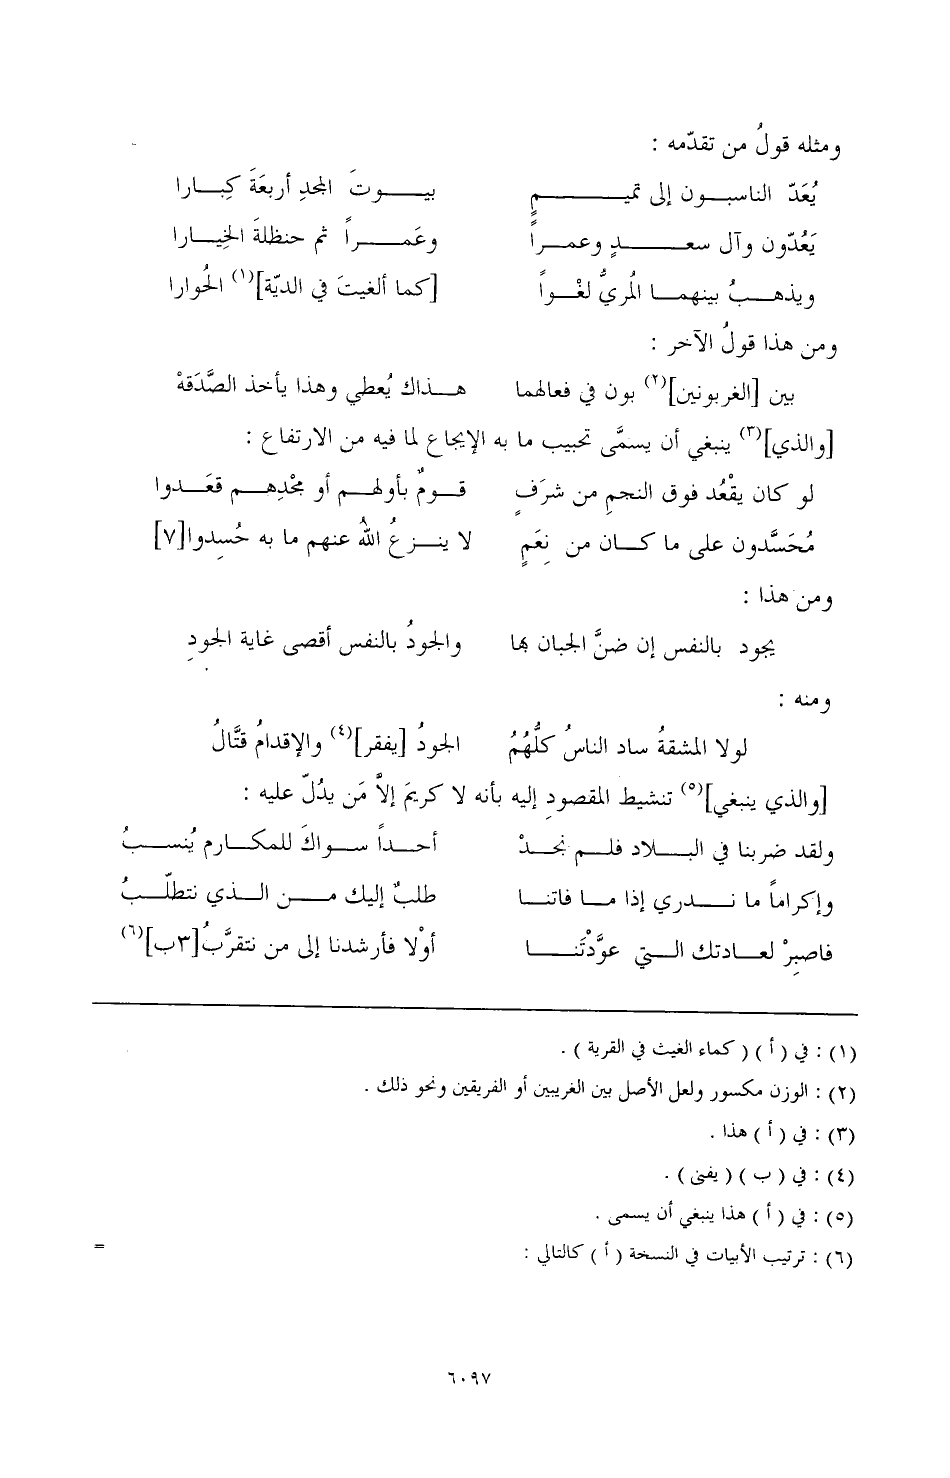 ومثله قولُ من تقدّمه :
يُعَدّ الناسبون إلى تميمٍ بيوتَ المجدِ أربعَةَ كِبارا
يَعُدّون وآل سعدٍ وعمراً وعَمراً ثم حنظلةَ الخِيارا
ويذهبُ بينهما المُريُّ لغْواً [كما ألغيتَ في الديّة](١) الحُوارا
ومن هذا قولُ الآخر :
بين [الغربونين](٢) بون في فعالهما هذاك يُعطي وهذا يأخذ الصَّدَقهْ
[والذي](٣) ينبغي أن يسمَّى تحبيب ما به الإيجاع لما فيه من الارتفاع :
لو كان يقْعُد فوق النجمِ من شرَفٍ قومٌ بأولهم أو مجْدِهم قعَدوا
مُحَسَّدون على ما كان من نِعَمٍ لا ينزعُ اللهُ عنهم ما به حُسِدوا[٧]
ومن هذا :
يجود بالنفس إن ضنَّ الجبان بها والجودُ بالنفس أقصى غاية الجودِ
ومنه :
لولا المشقةُ ساد الناسُ كلُّهُمُ الجودُ [يفقر](٤) والإقدامُ قتَّالُ
[والذي ينبغي](٥) تنشيط المقصودِ إليه بأنه لا كريمَ إلاَّ مَن يدُلّ عليه :
ولقد ضربنا في البلاد فلم نجدْ أحداً سواكَ للمكارم يُنسبُ
وإكراماً ما ندري إذا ما فاتنا طلبٌ إليك من الذي نتطلّبُ
فاصبِرْ لعادتك التي عوَّدْتَنا أوْلا فأرشدنا إلى من نتقرَّبُ[٣ب](٦)
(١) : في ( أ ) ( كماء الغيث في القرية ) .
(٢) : الوزن مكسور ولعل الأصل بين الغريبين أو الفريقين ونحو ذلك .
(٣) : في ( أ ) هذا .
(٤) : في ( ب ) ( يفنى ) .
(٥) : في ( أ ) هذا ينبغي أن يسمى .
(٦) : ترتيب الأبيات في النسخة ( أ ) كالتالي :
=
٦٠٩٧